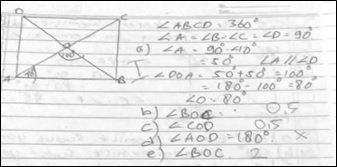 D
C
O
100°
A
40°
B
∠ABCD = 360°
∠A = ∠B = ∠C = ∠D = 90°
a) ∠A = 90° - 40°
= 50° ∠A // ∠D
∠DOA = 50° + 50° = 100°
= 180° - 100° = 80°
∠O = 80°
b) ∠BOC 0,5
c) ∠COD 0,5
d) ∠AOD = 180° ×
e) ∠BOC 2